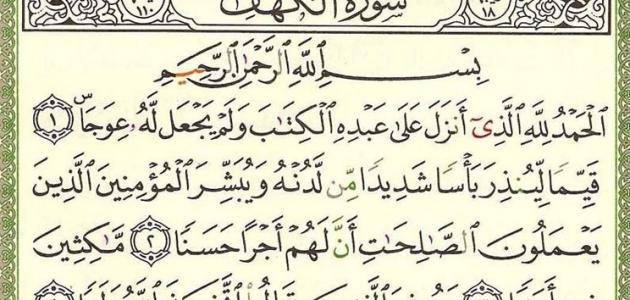 سُورَةُ الكَهْفِ ١٨
بِسْمِ ٱللَّهِ ٱلرَّحْمَٰنِ ٱلرَّحِيمِ
ٱلْحَمْدُ لِلَّهِ ٱلَّذِىٓ أَنزَلَ عَلَىٰ عَبْدِهِ ٱلْكِتَٰبَ وَلَمْ يَجْعَل لَّهُۥ عِوَجَاۜ ١
قَيِّمًا لِّيُنذِرَ بَأْسًا شَدِيدًا مِّن لَّدُنْهُ وَيُبَشِّرَ ٱلْمُؤْمِنِينَ ٱلَّذِينَ
يَعْمَلُونَ ٱلصَّٰلِحَٰتِ أَنَّ لَهُمْ أَجْرًا حَسَنًا ٢ مَّٰكِثِينَ